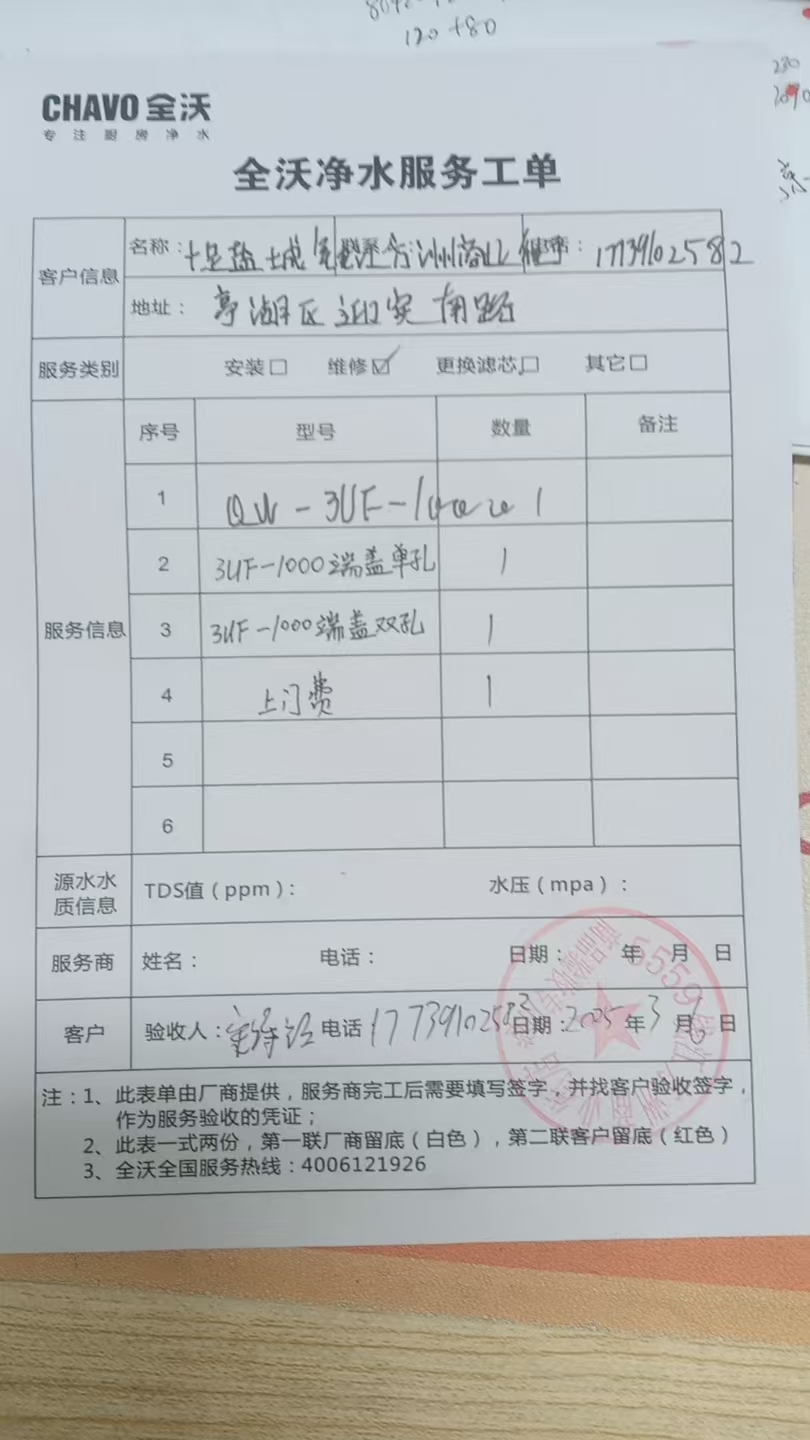 120+80
CHAVO 全沃
专注厨房净水
全沃净水服务工单
客户信息
名称：十足盐城 17739102582
地址：亭湖区迎宾南路
服务类别 安装□ 维修☑ 更换滤芯□ 其它□
服务信息
序号 型号 数量 备注
1 QW-3UF-1000 1
2 3UF-1000端盖单孔 1
3 3UF-1000端盖双孔 1
4 上门费 1
5
6
源水水质信息 TDS值（ppm）： 水压（mpa）：
服务商 姓名： 电话： 日期： 年 月 日
客户 验收人： 电话 17739102582 日期：2025年3月6日
注：1、此表单由厂商提供，服务商完工后需要填写签字，并找客户验收签字，
作为服务验收的凭证；
2、此表一式两份，第一联厂商留底（白色），第二联客户留底（红色）
3、全沃全国服务热线：4006121926